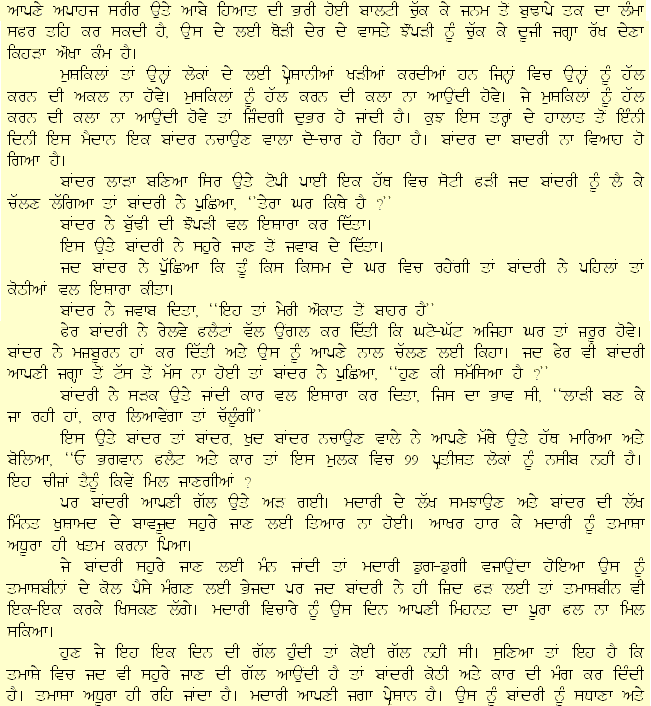 ਆਪਣੇ ਅਪਾਹਜ ਸਰੀਰ ਉਤੇ ਆਬੇ ਹਿਆਤ ਦੀ ਭਰੀ ਹੋਈ ਬਾਲਟੀ ਚੁੱਕ ਕੇ ਜਨਮ ਤੋਂ ਬੁਢਾਪੇ ਤਕ ਦਾ ਲੰਮਾ
ਸਫਰ ਤਹਿ ਕਰ ਸਕਦੀ ਹੈ, ਉਸ ਦੇ ਲਈ ਥੋੜੀ ਦੇਰ ਦੇ ਵਾਸਤੇ ਝੌਂਪੜੀ ਨੂੰ ਚੁੱਕ ਕੇ ਦੂਜੀ ਜਗ੍ਹਾ ਰੱਖ ਦੇਣਾ
ਕਿਹੜਾ ਔਖਾ ਕੰਮ ਹੈ।
ਮੁਸ਼ਕਿਲਾਂ ਤਾਂ ਉਨ੍ਹਾਂ ਲੋਕਾਂ ਦੇ ਲਈ ਪ੍ਰੇਸ਼ਾਨੀਆਂ ਖੜੀਆਂ ਕਰਦੀਆਂ ਹਨ ਜਿਨ੍ਹਾਂ ਵਿਚ ਉਨ੍ਹਾਂ ਨੂੰ ਹੱਲ
ਕਰਨ ਦੀ ਅਕਲ ਨਾ ਹੋਵੇ। ਮੁਸ਼ਕਿਲਾਂ ਨੂੰ ਹੱਲ ਕਰਨ ਦੀ ਕਲਾ ਨਾ ਆਉਂਦੀ ਹੋਵੇ। ਜੇ ਮੁਸ਼ਕਿਲਾਂ ਨੂੰ ਹੱਲ
ਕਰਨ ਦੀ ਕਲਾ ਨਾ ਆਉਂਦੀ ਹੋਵੇ ਤਾਂ ਜ਼ਿੰਦਗੀ ਦੁਭਰ ਹੋ ਜਾਂਦੀ ਹੈ। ਕੁਝ ਇਸ ਤਰ੍ਹਾਂ ਦੇ ਹਾਲਾਤ ਤੋਂ ਇੰਨੀ
ਦਿਨੀ ਇਸ ਮੈਦਾਨ ਇਕ ਬਾਂਦਰ ਨਚਾਉਣ ਵਾਲਾ ਦੋ-ਚਾਰ ਹੋ ਰਿਹਾ ਹੈ। ਬਾਂਦਰ ਦਾ ਬਾਦਰੀ ਨਾ ਵਿਆਹ ਹੋ
ਗਿਆ ਹੈ।
ਬਾਂਦਰ ਲਾੜਾ ਬਣਿਆ ਸਿਰ ਉਤੇ ਟੋਪੀ ਪਾਈ ਇਕ ਹੱਥ ਵਿਚ ਸੋਟੀ ਫੜੀ ਜਦ ਬਾਂਦਰੀ ਨੂੰ ਲੈ ਕੇ
ਚੱਲਣ ਲੱਗਿਆ ਤਾਂ ਬਾਂਦਰੀ ਨੇ ਪੁਛਿਆ, ''ਤੇਰਾ ਘਰ ਕਿਥੇ ਹੈ ?''
ਬਾਂਦਰ ਨੇ ਬੁੱਢੀ ਦੀ ਝੌਂਪੜੀ ਵਲ ਇਸ਼ਾਰਾ ਕਰ ਦਿੱਤਾ।
ਇਸ ਉਤੇ ਬਾਂਦਰੀ ਨੇ ਸਹੁਰੇ ਜਾਣ ਤੋਂ ਜਵਾਬ ਦੇ ਦਿੱਤਾ।
ਜਦ ਬਾਂਦਰ ਨੇ ਪੁੱਛਿਆ ਕਿ ਤੂੰ ਕਿਸ ਕਿਸਮ ਦੇ ਘਰ ਵਿਚ ਰਹੇਗੀ ਤਾਂ ਬਾਂਦਰੀ ਨੇ ਪਹਿਲਾਂ ਤਾਂ
ਕੋਠੀਆਂ ਵਲ ਇਸ਼ਾਰਾ ਕੀਤਾ।
ਬਾਂਦਰ ਨੇ ਜਵਾਬ ਦਿਤਾ, ''ਇਹ ਤਾਂ ਮੇਰੀ ਔਕਾਤ ਤੋਂ ਬਾਹਰ ਹੈ''
ਫੇਰ ਬਾਂਦਰੀ ਨੇ ਰੇਲਵੇ ਫਲੈਟਾਂ ਵੱਲ ਉਂਗਲ ਕਰ ਦਿੱਤੀ ਕਿ ਘਟੋ-ਘੱਟ ਅਜਿਹਾ ਘਰ ਤਾਂ ਜ਼ਰੂਰ ਹੋਵੇ।
ਬਾਂਦਰ ਨੇ ਮਜ਼ਬੂਰਨ ਹਾਂ ਕਰ ਦਿੱਤੀ ਅਤੇ ਉਸ ਨੂੰ ਆਪਣੇ ਨਾਲ ਚੱਲਣ ਲਈ ਕਿਹਾ। ਜਦ ਫੇਰ ਵੀ ਬਾਂਦਰੀ
ਆਪਣੀ ਜਗ੍ਹਾ ਤੋਂ ਟੱਸ ਤੋਂ ਮੱਸ ਨਾ ਹੋਈ ਤਾਂ ਬਾਂਦਰ ਨੇ ਪੁਛਿਆ, ''ਹੁਣ ਕੀ ਸਮੱਸਿਆ ਹੈ ?''
ਬਾਂਦਰੀ ਨੇ ਸੜਕ ਉਤੇ ਜਾਂਦੀ ਕਾਰ ਵਲ ਇਸ਼ਾਰਾ ਕਰ ਦਿਤਾ, ਜਿਸ ਦਾ ਭਾਵ ਸੀ, ''ਲਾੜੀ ਬਣ ਕੇ
ਜਾ ਰਹੀ ਹਾਂ, ਕਾਰ ਲਿਆਵੇਂਗਾ ਤਾਂ ਚੱਲੂੰਗੀ''
ਇਸ ਉਤੇ ਬਾਂਦਰ ਤਾਂ ਬਾਂਦਰ, ਖ਼ੁਦ ਬਾਂਦਰ ਨਚਾਉਣ ਵਾਲੇ ਨੇ ਆਪਣੇ ਮੱਥੇ ਉਤੇ ਹੱਥ ਮਾਰਿਆ ਅਤੇ
ਬੋਲਿਆ, ''ਓ ਭਗਵਾਨ ਫਲੈਟ ਅਤੇ ਕਾਰ ਤਾਂ ਇਸ ਮੁਲਕ ਵਿਚ ੭੭ ਪ੍ਰਤੀਸ਼ਤ ਲੋਕਾਂ ਨੂੰ ਨਸੀਬ ਨਹੀਂ ਹੈ।
ਇਹ ਚੀਜਾਂ ਤੈਨੂੰ ਕਿਵੇਂ ਮਿਲ ਜਾਣਗੀਆਂ ?
ਪਰ ਬਾਂਦਰੀ ਆਪਣੀ ਗੱਲ ਉਤੇ ਅੜ ਗਈ। ਮਦਾਰੀ ਦੇ ਲੱਖ ਸਮਝਾਉਣ ਅਤੇ ਬਾਂਦਰ ਦੀ ਲੱਖ
ਮਿੰਨਤ ਖੁਸ਼ਾਮਦ ਦੇ ਬਾਵਜੂਦ ਸਹੁਰੇ ਜਾਣ ਲਈ ਤਿਆਰ ਨਾ ਹੋਈ। ਆਖਰ ਹਾਰ ਕੇ ਮਦਾਰੀ ਨੂੰ ਤਮਾਸ਼ਾ
ਅਧੂਰਾ ਹੀ ਖਤਮ ਕਰਨਾ ਪਿਆ।
ਜੇ ਬਾਂਦਰੀ ਸਹੁਰੇ ਜਾਣ ਲਈ ਮੰਨ ਜਾਂਦੀ ਤਾਂ ਮਦਾਰੀ ਡੁਗ-ਡੁਗੀ ਵਜਾਉਂਦਾ ਹੋਇਆ ਉਸ ਨੂੰ
ਤਮਾਸ਼ਬੀਨਾਂ ਦੇ ਕੋਲ ਪੈਸੇ ਮੰਗਣ ਲਈ ਭੇਜਦਾ ਪਰ ਜਦ ਬਾਂਦਰੀ ਨੇ ਹੀ ਜ਼ਿਦ ਫੜ ਲਈ ਤਾਂ ਤਮਾਸ਼ਬੀਨ ਵੀ
ਇਕ-ਇਕ ਕਰਕੇ ਖਿਸਕਣ ਲੱਗੇ। ਮਦਾਰੀ ਵਿਚਾਰੇ ਨੂੰ ਉਸ ਦਿਨ ਆਪਣੀ ਮਿਹਨਤ ਦਾ ਪੂਰਾ ਫਲ ਨਾ ਮਿਲ
ਸਕਿਆ।
ਹੁਣ ਜੇ ਇਹ ਇਕ ਦਿਨ ਦੀ ਗੱਲ ਹੁੰਦੀ ਤਾਂ ਕੋਈ ਗੱਲ ਨਹੀਂ ਸੀ। ਸੁਣਿਆ ਤਾਂ ਇਹ ਹੈ ਕਿ
ਤਮਾਸ਼ੇ ਵਿਚ ਜਦ ਵੀ ਸਹੁਰੇ ਜਾਣ ਦੀ ਗੱਲ ਆਉਂਦੀ ਹੈ ਤਾਂ ਬਾਂਦਰੀ ਕੋਠੀ ਅਤੇ ਕਾਰ ਦੀ ਮੰਗ ਕਰ ਦਿੰਦੀ
ਹੈ। ਤਮਾਸ਼ਾ ਅਧੂਰਾ ਹੀ ਰਹਿ ਜਾਂਦਾ ਹੈ। ਮਦਾਰੀ ਆਪਣੀ ਜਗਾ ਪ੍ਰੇਸ਼ਾਨ ਹੈ। ਉਸ ਨੂੰ ਬਾਂਦਰੀ ਨੂੰ ਸਧਾਣਾ ਅਤੇ